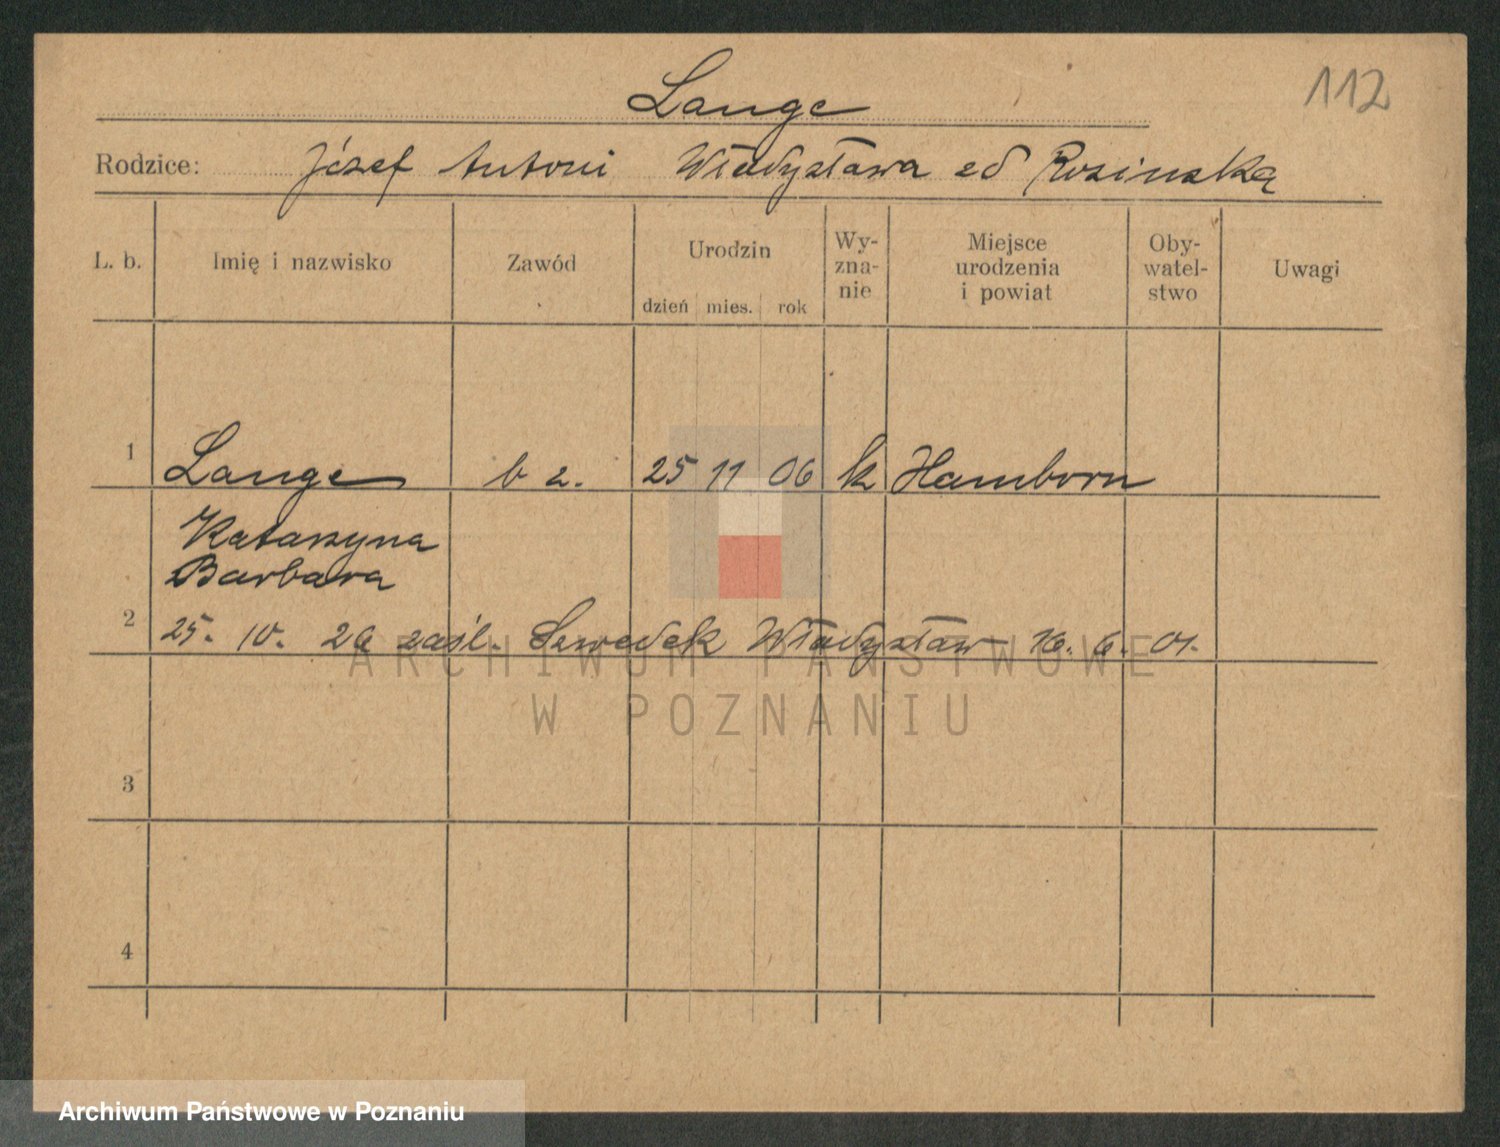 Lange
112
Rodzice: Józef Antoni Władysława ed Rosinską
L. b. Imię i nazwisko Zawód Urodzin dzień mies. rok Wy-zna-nie Miejsce urodzenia i powiat Oby-watel-stwo Uwagi
1 Lange b z. 25 11 06 k Hamborn
Katarzyna
Barbara
2 25. 10. 26 zaśl. Szwedek Władysław 16. 6. 01.
ARCHIWUM PAŃSTWOWE
W POZNANIU
3
4
Archiwum Państwowe w Poznaniu